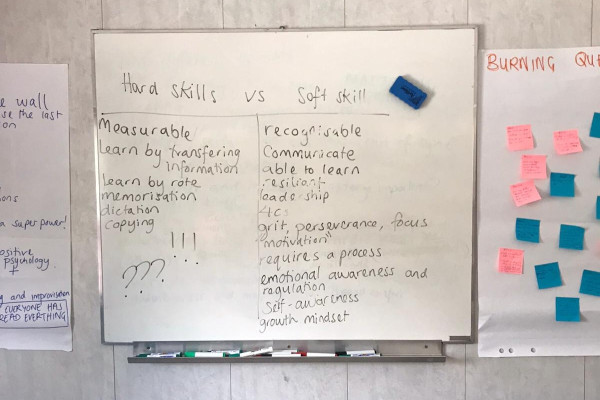 e wall
se the last
on
ons
a super power!
ositive
psychology
+
EVERYONE HAS
READ EVERTHING
Hard skills vs Soft skill
Measurable
Learn by transfering
information
Learn by rote
memorisation
dictation
copying
!!!
???
recognisable
Communicate
able to learn
resilient
leadership
4Cs
grit, perseverance, focus
"motivation"
requires a process
emotional awareness and
regulation
Self-awareness
growth mindset
BURNING QUE